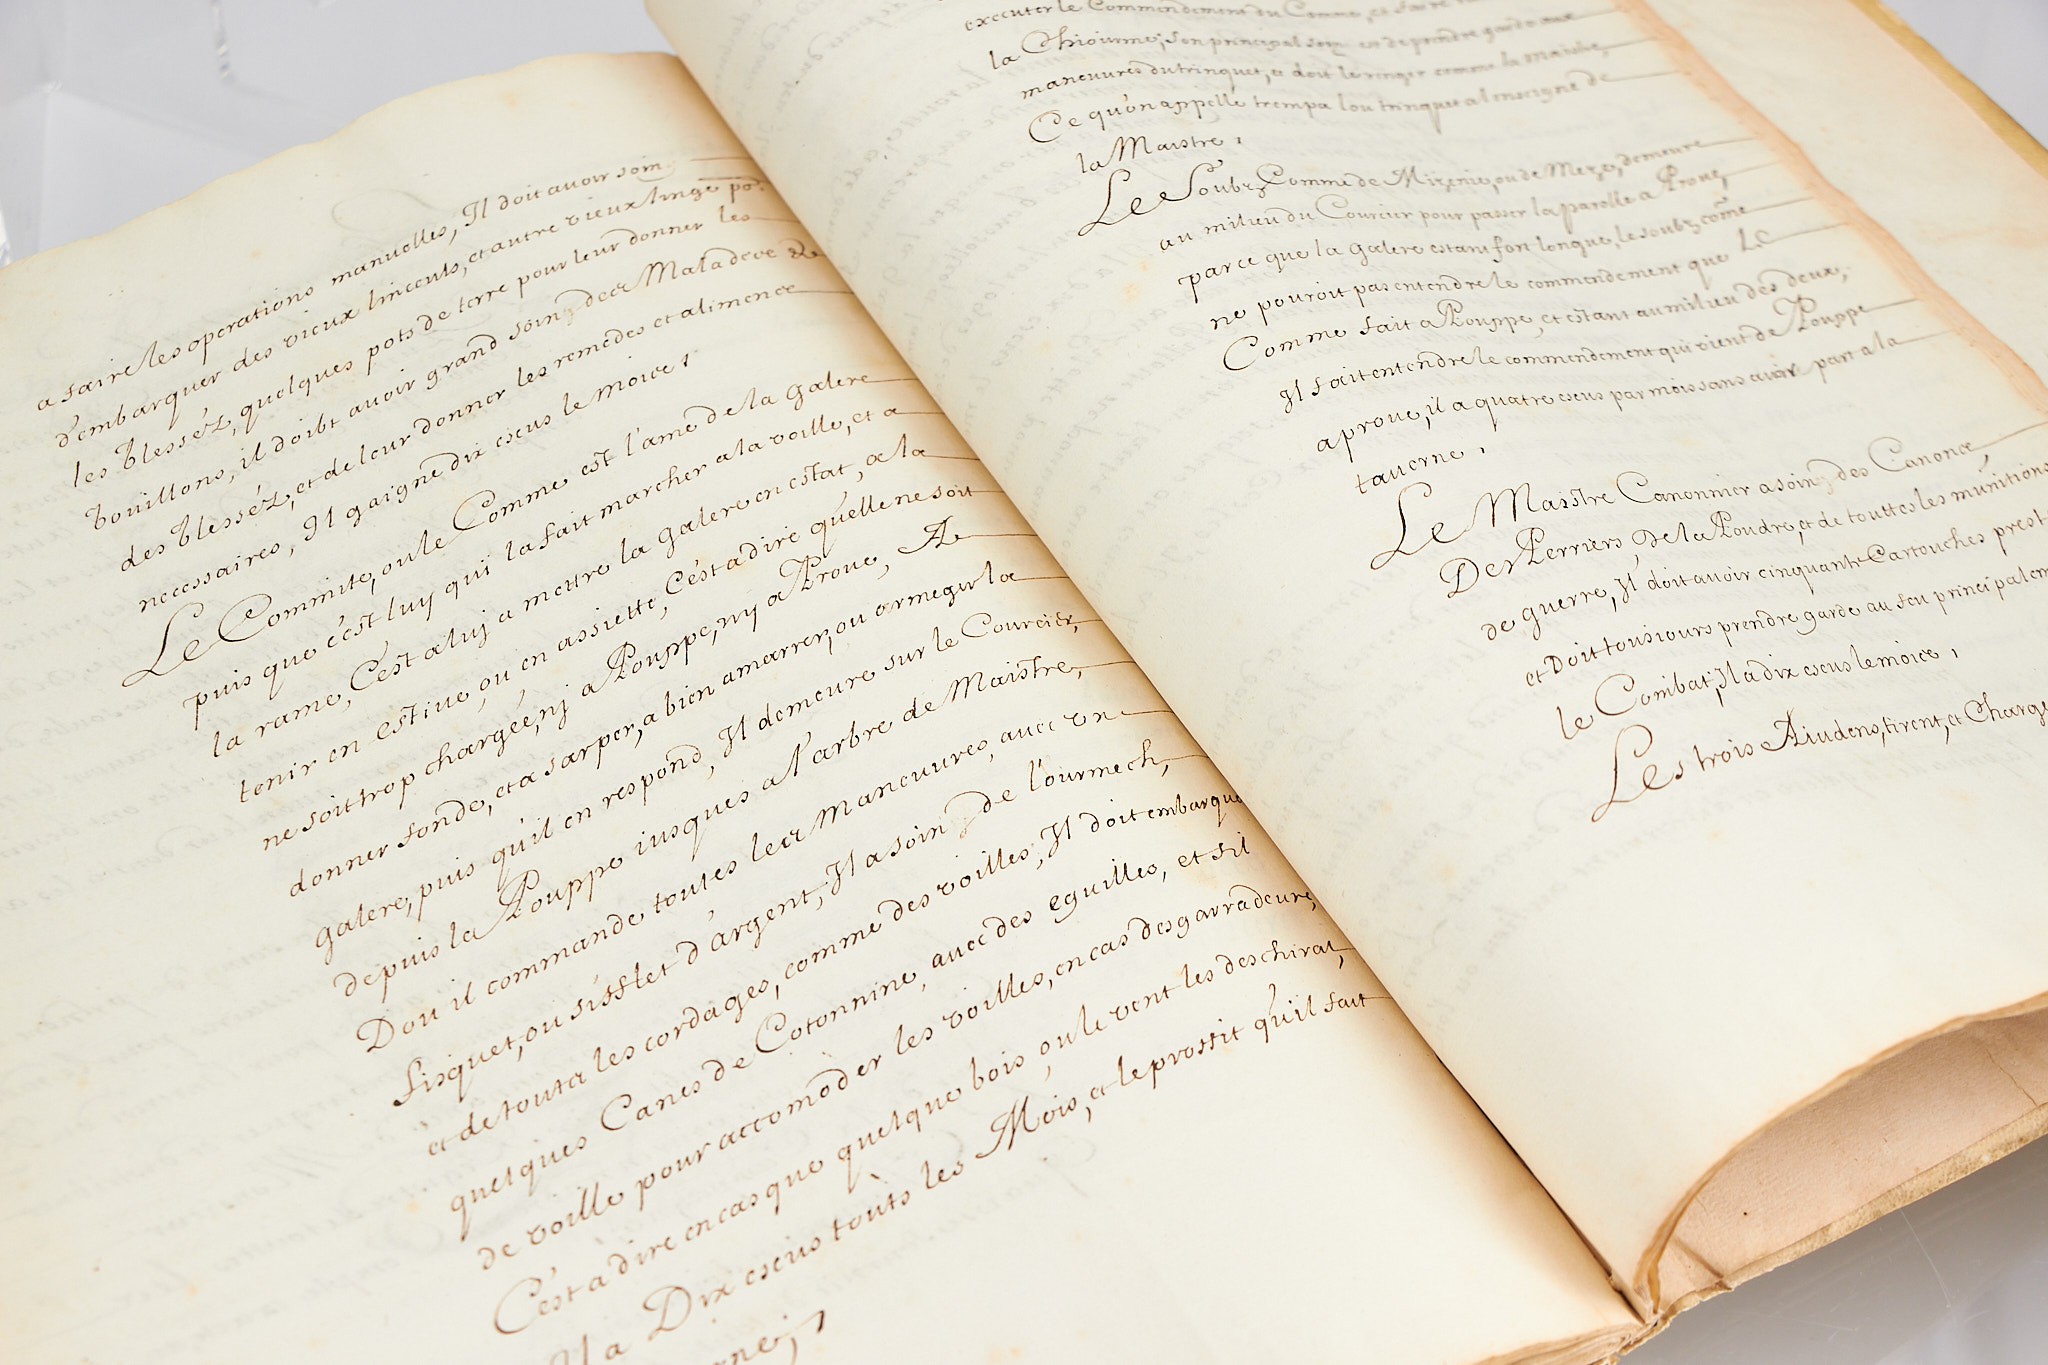 a faire les operations manuelles, Il doit avoir soin
d'embarquer des vieux linceuls, et autre vieux linge po.r
les blesséz, quelques pots de terre pour leur donner les
bouillons, il doibt avoir grand soin des Malades &
des blesséz, et de leur donner les remedes et alimence
necessaires, Il gaigne dix escus le moice,
Le Commite, ou le Comme est l'ame de la galere
puis que c'est luy qui la fait marcher a la voille, et a
la rame, C'est a luj a mettre la galere en estat, a la
tenir en estiue, ou en assiette, C'est a dire qu'elle ne soit
ne soit trop chargée, nj a Pouppe, ny a Proue, A
donner fonde, et a sarper, a bien amarrer, ou ormegur la
galere, puis qu'il en respond, Il demeure sur le Courcier,
depuis la Pouppe iusques a l'arbre de Maistre,
Dou il commande toutes les manœuures, auec vn
fisquet, ou sifflet d'argent, Il a soin de l'ourmech,
et de touta les cordages, comme des voilles, Il doit embarque
quelques Canes de Cotonnine, auec des eguilles, et fil
de voille pour accomoder les voilles, en cas desgarradeure,
C'est a dire en cas que quelque bois, ou le vent les deschirat,
Il a Dix escus touts les Mois, et le proffit qu'il fait
executer le Commendement du Comme, et faire
la Chiourme, son principal soin est de prendre garde aux
manœuures du trinquet, et doit le ranger comme la maistre,
Ce qu'on appelle trempa lou trinquet a l'enseigne de
la Maistre,
Le Soubz Comme de Mizenie, ou de Meze, demeure
au milieu du Courcier pour passer la parolle a Proue,
parce que la galere estant fort longue, le soubz come
ne pouroit pas entendre le commendement que Le
Comme fait a Pouppe, et estant au milieu des deux,
Il fait entendre le commendement qui vient de Pouppe
a proue, il a quatre escus par mois sans avoir part a la
tauerne,
Le Maistre Canonnier a soin des Canons,
Des Perriers, de la Poudre, et de touttes les munitions
de guerre, Il doit avoir cinquante Cartouches prest
et Doit tousiours prendre garde au feu principalem
le Combat, Il a dix escus le moice,
Les trois Aiudens, tirent, et Charge